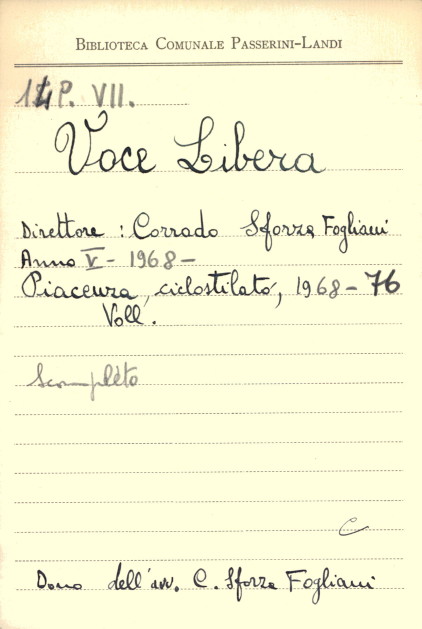 BIBLIOTECA COMUNALE PASSERINI-LANDI
14 P. VII.
Voce Libera
Direttore : Corrado Sforza Fogliani
Anno V - 1968 -
Piacenza, ciclostilato, 1968 - 76
Voll.
Scomplèto
C
Dono dell'avv. C. Sforza Fogliani